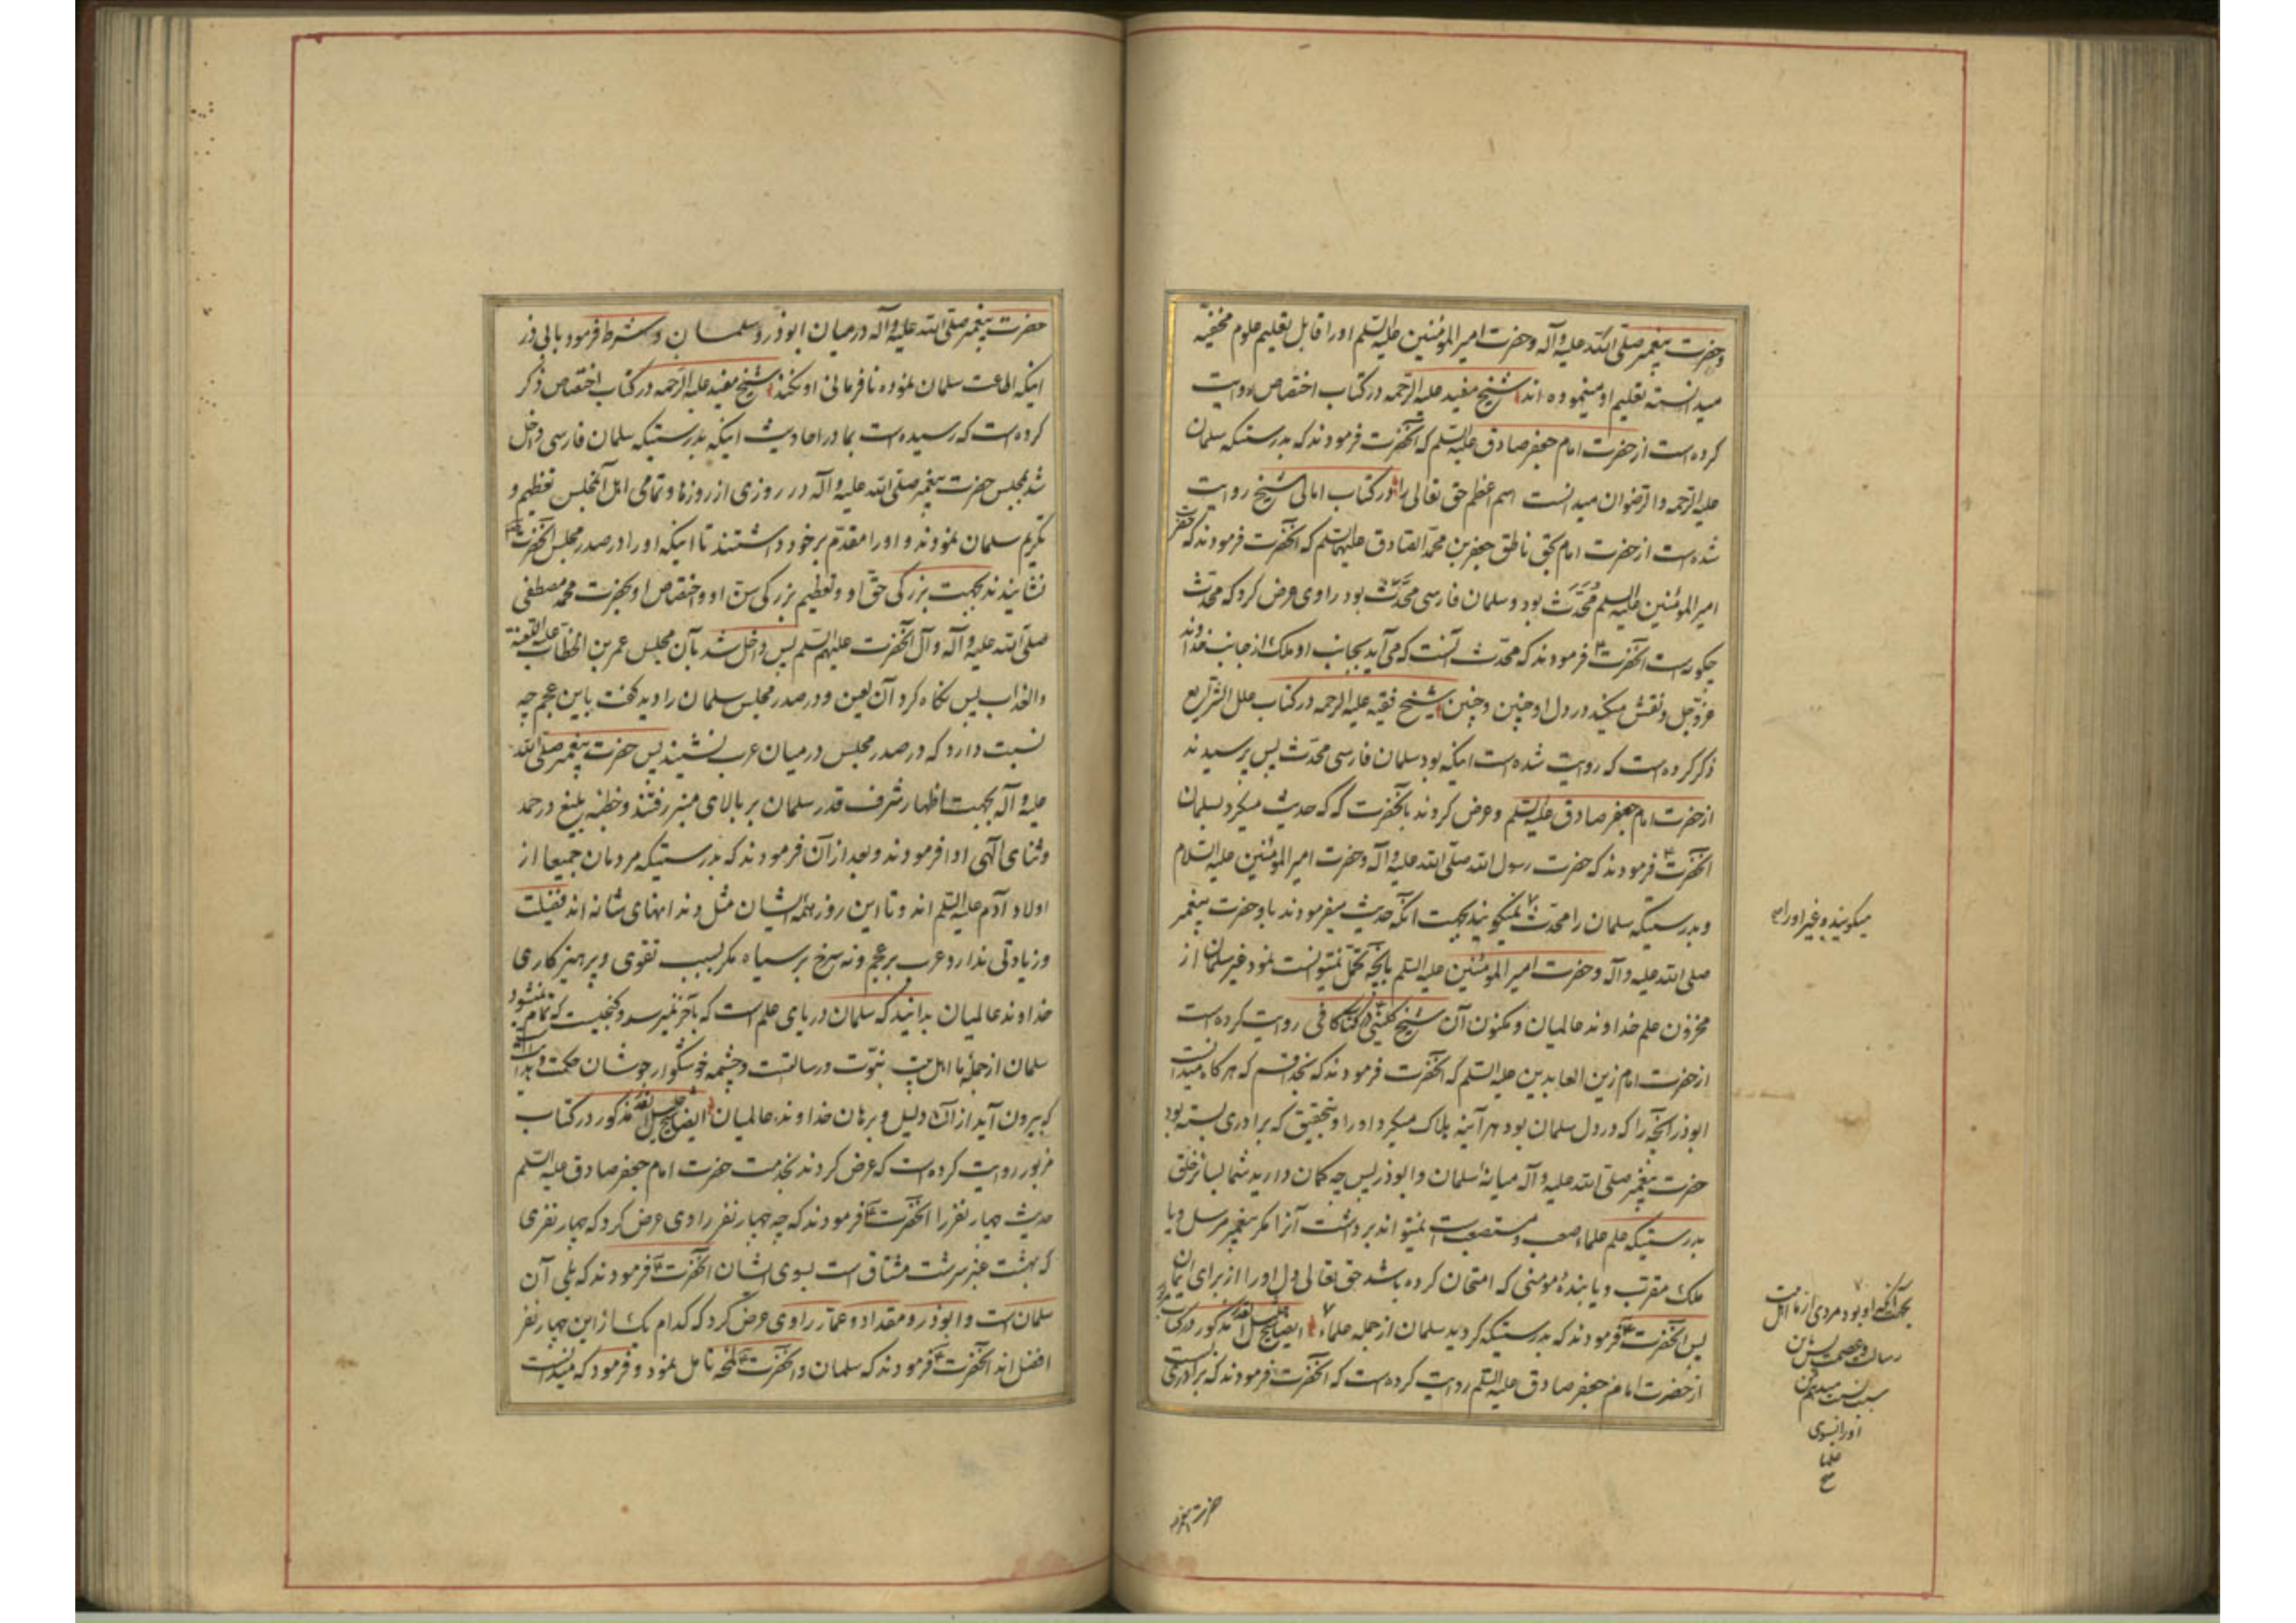 وحضرت پیغمبر صلی الله علیه وآله وحضرت امیر المؤمنین علیه السلم اورا قابل تعلیم علوم مخفیه
میدانسته تعلیم او مینموده اند شیخ مفید علیه الرحمه در کتاب اختصاص روایت
کرده است از حضرت امام جعفر صادق علیه السلم که آنحضرت فرمودند که بدرستیکه سلمان
علیه الرحمه والرضوان میدانست اسم اعظم حق تعالی را ودر کتاب امالی شیخ روایت
شده است از حضرت امام بحق ناطق جعفر بن محمد الصادق علیهما السلم که آنحضرت فرمودند که حضرت
امیر المؤمنین علیه السلم محدث بود وسلمان فارسی محدث بود راوی عرض کرد که محدث
چگونه است آنحضرت فرمودند که محدث آنست که می آید بجانب او ملک از جانب خداوند
عزوجل ونقش میکند در دل او چنین وچنین شیخ فقیه علیه الرحمه در کتاب علل الشرایع
ذکر کرده است که روایت شده است اینکه بود سلمان فارسی محدث پس پرسیدند
از حضرت امام جعفر صادق علیه السلم وعرض کردند بآنحضرت که که حدیث میکرد بسلمان
آنحضرت فرمودند که حضرت رسول الله صلی الله علیه وآله وحضرت امیر المؤمنین علیه السلام
وبدرستیکه سلمان را محدث میگویند بجهت آنکه حدیث میفرمودند باو حضرت پیغمبر
صلی الله علیه وآله وحضرت امیر المؤمنین علیه السلم بآنچه تحمل نمیتوانست نمود غیر سلمان از
مخزون علم خداوند عالمیان ومکنون آن شیخ کلینی در کتاب کافی روایت کرده است
از حضرت امام زین العابدین علیه السلم که آنحضرت فرمودند که بخدا قسم که هر گاه میدانست
ابوذر آنچه را که در دل سلمان بود هر آینه هلاک میکرد اورا وبتحقیق که برادری بسته بود
حضرت پیغمبر صلی الله علیه وآله میانهٔ سلمان وابوذر پس چه گمان دارید شما بسائر خلق
بدرستیکه علم علماء صعب ومستصعب است نمیتواند برداشت آنرا مگر پیغمبر مرسل ویا
ملک مقرب ویا بندهٔ مومنی که امتحان کرده باشد حق تعالی دل اورا از برای ایمان
پس آنحضرت فرمودند که بدرستیکه گردید سلمان از جمله علماء ایضا شیخ جلیل القدر مذکور در کتاب مزبور
از حضرت امام جعفر صادق علیه السلم روایت کرده است که آنحضرت فرمودند که برادری بست
میگویند وغیر اورا
بجهت آنکه او بود مردی از ما اهل بیت
رسالت وعصمت پس از این
سبب نسبت میدهم
اورا بسوی
علما
حضرت پیغمبر
حضرت پیغمبر صلی الله علیه وآله در میان ابوذر وسلمان وشرط فرمود با ابی ذر
اینکه اطاعت سلمان نموده نافرمانی او نکند شیخ مفید علیه الرحمه در کتاب اختصاص ذکر
کرده است که رسیده است بما در احادیث اینکه بدرستیکه سلمان فارسی داخل
شد بمجلس حضرت پیغمبر صلی الله علیه وآله در روزی از روزها وتمامی اهل آنمجلس تعظیم و
تکریم سلمان نمودند واورا مقدم بر خود داشتند تا اینکه اورا در صدر مجلس آنحضرت
نشانیدند بجهت بزرگی حق او وتعظیم بزرگی سن او واختصاص او بحضرت محمد مصطفی
صلی الله علیه وآله وآل آنحضرت علیهم السلم پس داخل شد بآن مجلس عمر بن الخطاب علیه اللعنة
والعذاب پس نگاه کرد آن لعین ودر صدر مجلس سلمان را دید گفت باین عجم چه
نسبت دارد که در صدر مجلس در میان عرب نشیند پس حضرت پیغمبر صلی الله
علیه وآله بجهت اظهار شرف قدر سلمان بر بالای منبر رفتند وخطبه بلیغ در حمد
وثنای الهی ادا فرمودند وبعد از آن فرمودند که بدرستیکه مردمان جمیعا از
اولاد آدم علیه السلم اند وتا این روز همه ایشان مثل دندانهای شانه اند فضیلت
وزیادتی ندارد عرب بر عجم ونه سرخ بر سیاه مگر بسبب تقوی وپرهیزکاری
خداوند عالمیان بدانید که سلمان دریای علم است که بآخر نمیرسد وگنجیست که تمام نمیشود
سلمان از جمله ما اهل بیت نبوت ورسالتست وچشمه خوشگوار جوشان حکمت وبرهانست
که بیرون آید از آن دلیل وبرهان خداوند عالمیان ایضا شیخ جلیل القدر مذکور در کتاب
مزبور روایت کرده است که عرض کردند بخدمت حضرت امام جعفر صادق علیه السلم
حدیث چهار نفر را آنحضرت فرمودند که چه چهار نفر راوی عرض کرد که چهار نفری
که بهشت عنبر سرشت مشتاق است بسوی ایشان آنحضرت فرمودند که بلی آن
سلمان است وابوذر ومقداد وعمار راوی عرض کرد که کدام یک از این چهار نفر
افضل اند آنحضرت فرمودند که سلمان وآنحضرت لمحه تامل نمود وفرمود که میدانست